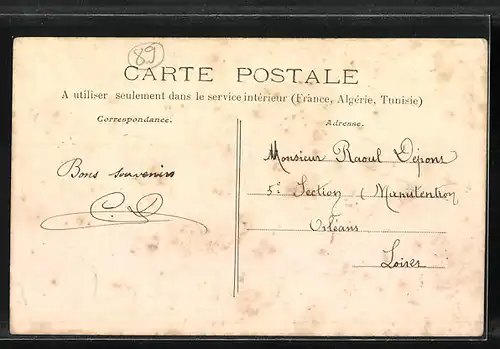 89
CARTE POSTALE
A utiliser seulement dans le service intérieur (France, Algérie, Tunisie)
Correspondance.
Adresse.
Bons souvenirs
Monsieur Raoul
5e Section (Manutention
Orléans